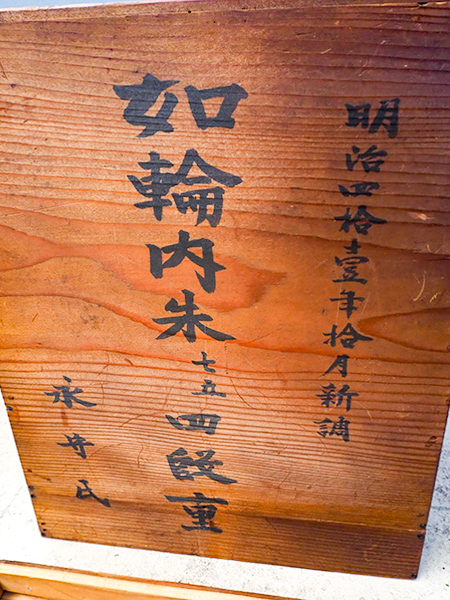 明治四拾壹年拾月新調
如輪内朱七五四段重
永井氏